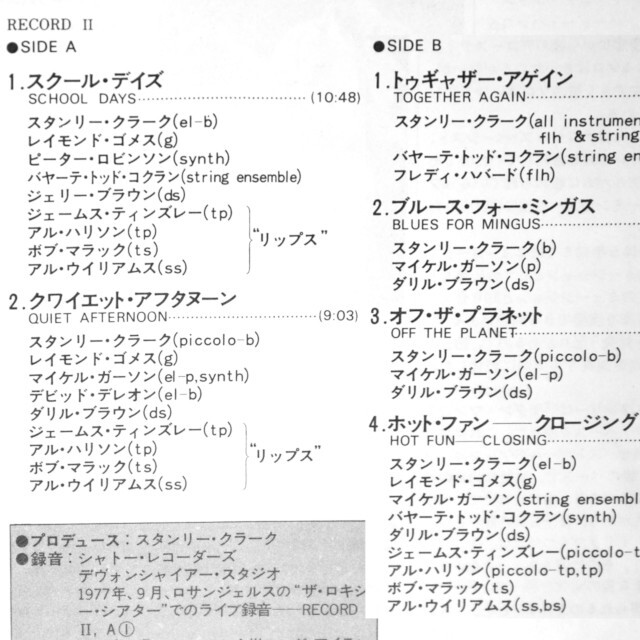 RECORD II
●SIDE A
1.スクール・デイズ
SCHOOL DAYS……………………(10:48)
スタンリー・クラーク(el-b)
レイモンド・ゴメス(g)
ピーター・ロビンソン(synth)
バヤーテ・トッド・コクラン(string ensemble)
ジェリー・ブラウン(ds)
ジェームス・ティンズレー(tp)
アル・ハリソン(tp)
ボブ・マラック(ts)
アル・ウイリアムス(ss)
“リップス”
2.クワイエット・アフタヌーン
QUIET AFTERNOON……………………(9:03)
スタンリー・クラーク(piccolo-b)
レイモンド・ゴメス(g)
マイケル・ガーソン(el-p,synth)
デビッド・デレオン(el-b)
ダリル・ブラウン(ds)
ジェームス・ティンズレー(tp)
アル・ハリソン(tp)
ボブ・マラック(ts)
アル・ウイリアムス(ss)
“リップス”
●プロデュース：スタンリー・クラーク
●録音：シャトー・レコーダーズ
デヴォンシャイアー・スタジオ
1977年、9月、ロサンジェルスの“ザ・ロキシ
ー・シアター”でのライブ録音——RECORD
II, A①
●SIDE B
1.トゥギャザー・アゲイン
TOGETHER AGAIN……………………
スタンリー・クラーク(all instrumen
flh & string
バヤーテ・トッド・コクラン(string en
フレディ・ハバード(flh)
2.ブルース・フォー・ミンガス
BLUES FOR MINGUS……………………
スタンリー・クラーク(b)
マイケル・ガーソン(p)
ダリル・ブラウン(ds)
3.オフ・ザ・プラネット
OFF THE PLANET……………………
スタンリー・クラーク(piccolo-b)
マイケル・ガーソン(el-p)
ダリル・ブラウン(ds)
4.ホット・ファン——クロージング
HOT FUN——CLOSING……………………
スタンリー・クラーク(el-b)
レイモンド・ゴメス(g)
マイケル・ガーソン(string ensembl
バヤーテ・トッド・コクラン(synth)
ダリル・ブラウン(ds)
ジェームス・ティンズレー(piccolo-t
アル・ハリソン(piccolo-tp,tp)
ボブ・マラック(ts)
アル・ウイリアムス(ss,bs)